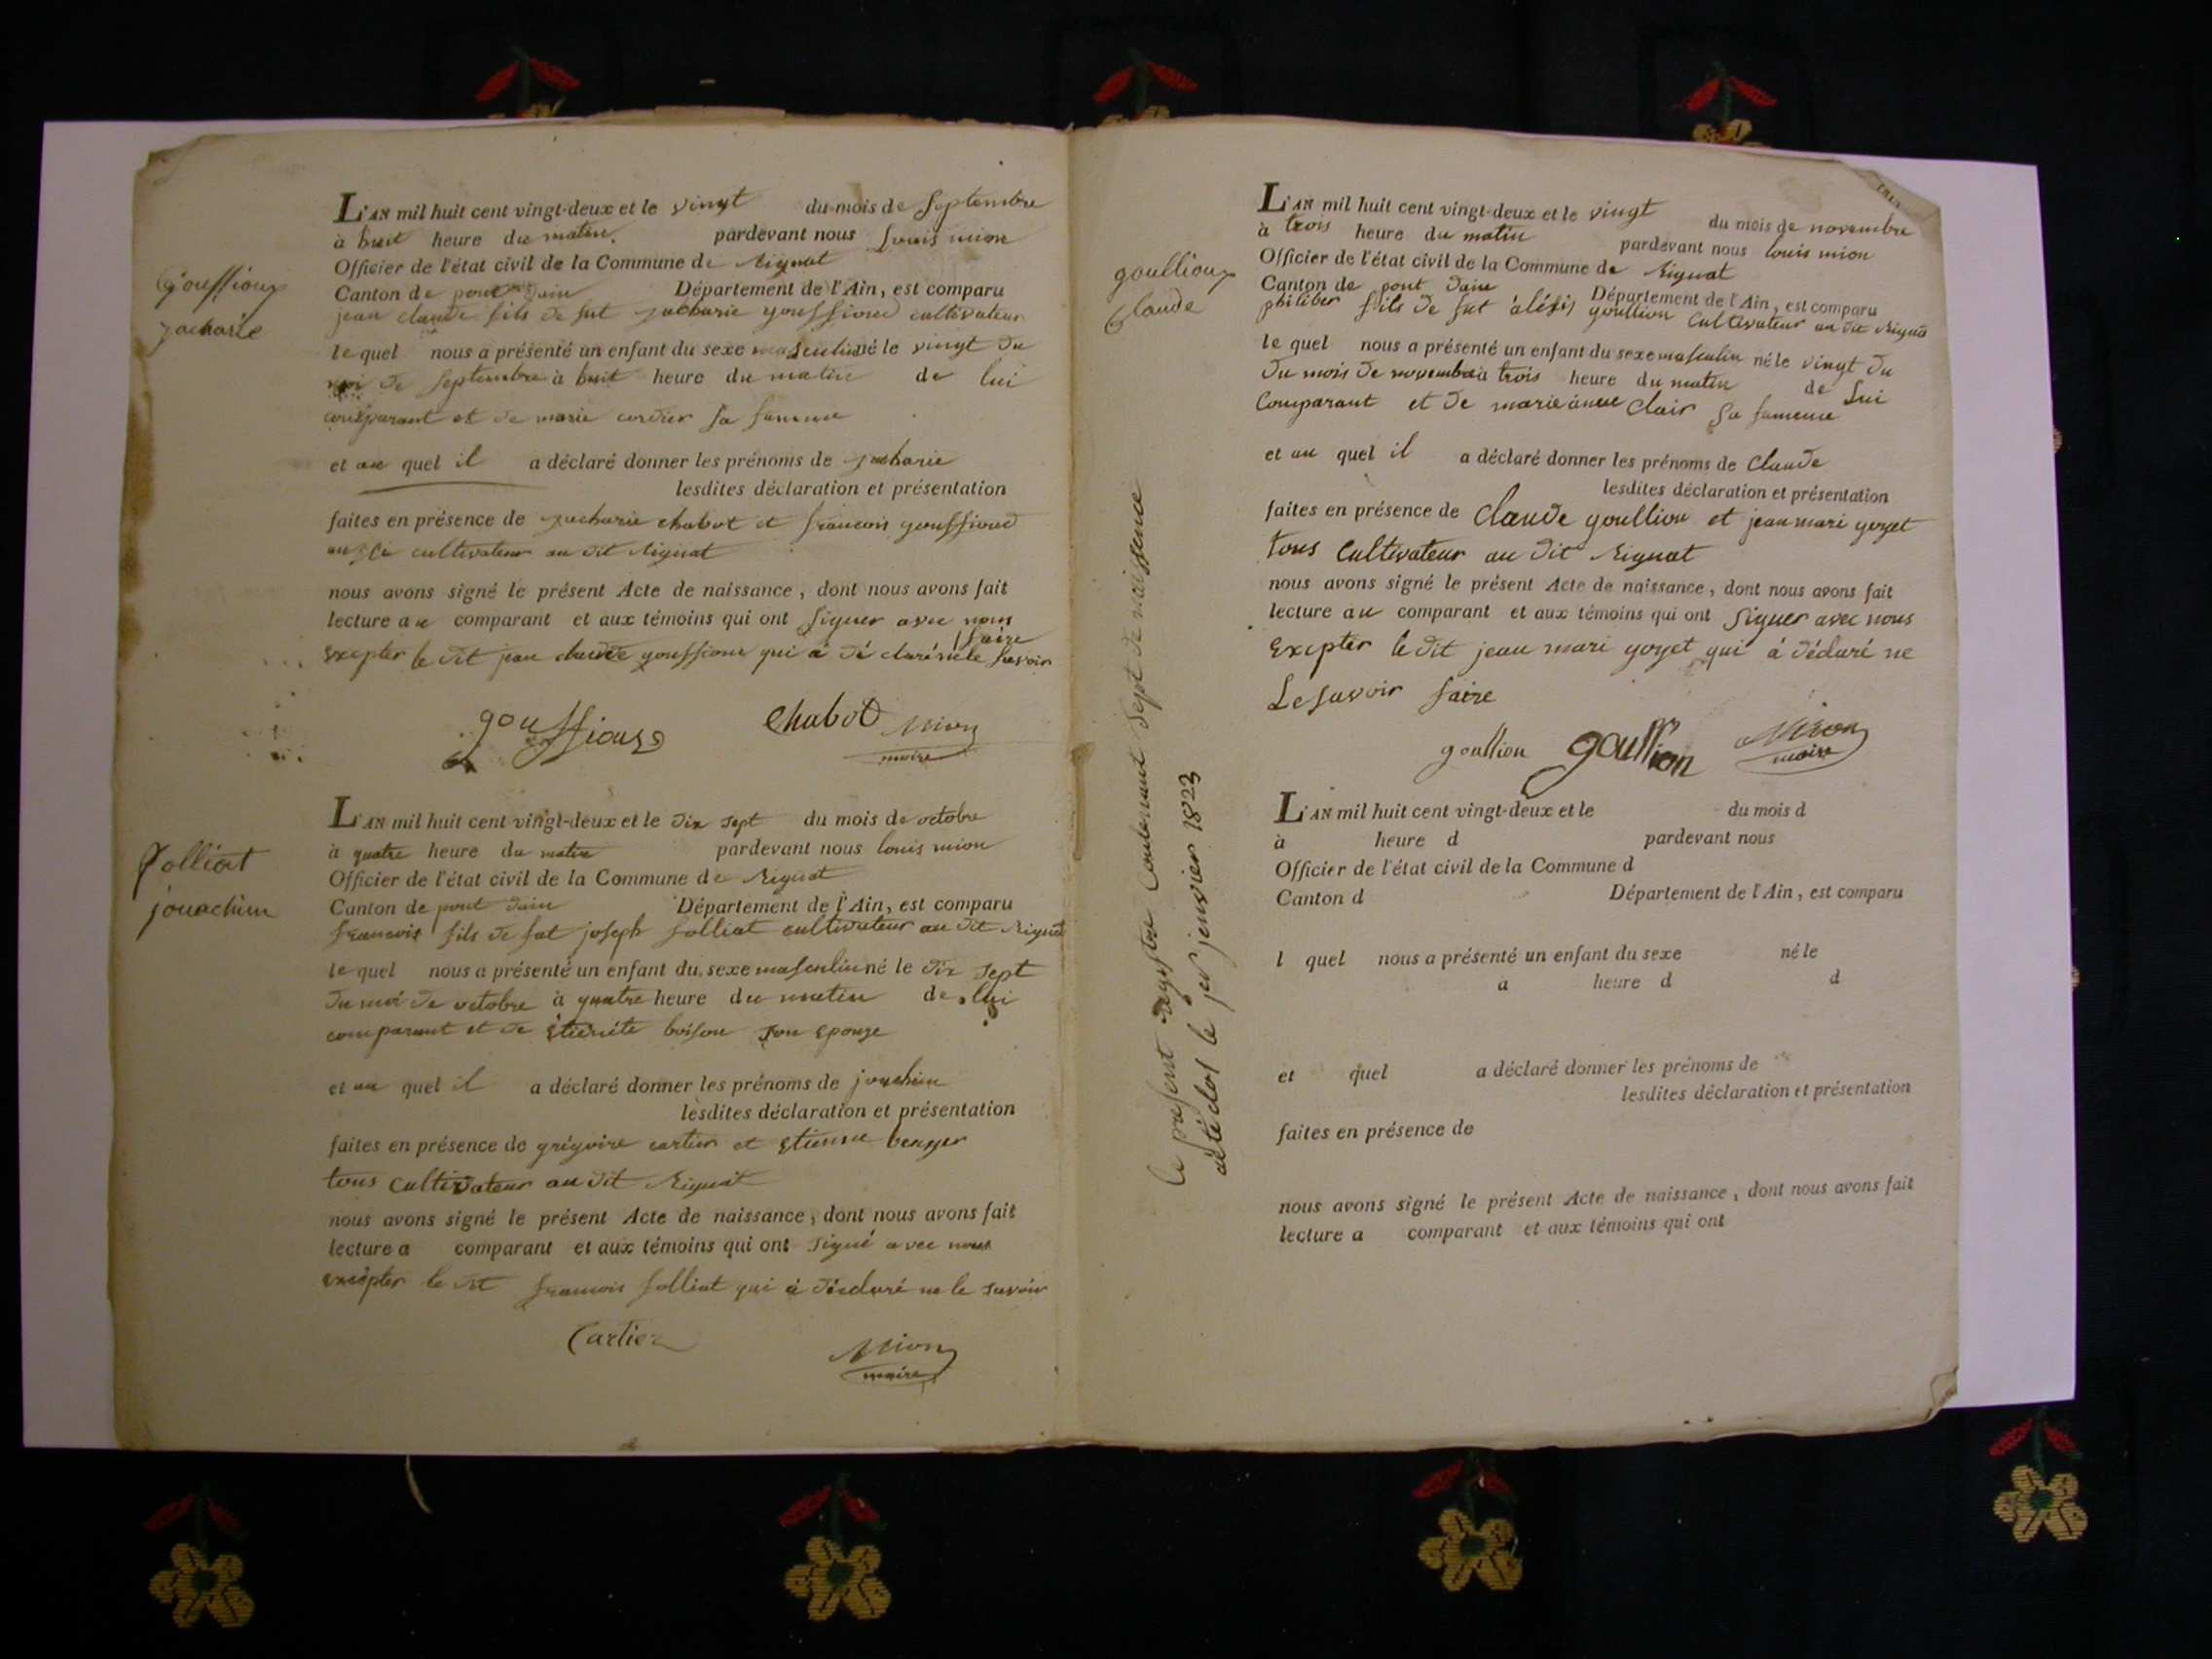 gouffioux
zacharie
L'AN mil huit cent vingt-deux et le vingt du mois de septembre
à huit heure du matin. pardevant nous Louis mion
Officier de l'état civil de la Commune de Rignat
Canton de pont dain Département de l'Ain, est comparu
jean claude fils de fut zacharie gouffioux cultivateur
le quel nous a présenté un enfant du sexe masculin né le vingt du
moi de septembre à huit heure du matin de lui
comparant et de marie cordier sa famme
et au quel il a déclaré donner les prénoms de zacharie
lesdites déclaration et présentation
faites en présence de zacharie chabot et francois gouffioux
aussi cultivateur au dit Rignat
nous avons signé le présent Acte de naissance, dont nous avons fait
lecture au comparant et aux témoins qui ont signer avec nous
faire
excepter le dit jean claude gouffioux qui à déclaré ne le savoir
gouffioux chabot Mion
maire
folliat
jouachim
L'AN mil huit cent vingt-deux et le dix sept du mois de octobre
à quatre heure du matin pardevant nous louis mion
Officier de l'état civil de la Commune de Rignat
Canton de pont dain Département de l'Ain, est comparu
francois fils de fut joseph folliat cultivateur au dit Rignat
le quel nous a présenté un enfant du sexe masculin né le dix sept
du moi de octobre à quatre heure du matin de lui
comparant et de boison son epouze
et au quel il a déclaré donner les prénoms de jouachim
lesdites déclaration et présentation
faites en présence de grégoire cartier et Etienne
tous cultivateur au dit Rignat
nous avons signé le présent Acte de naissance, dont nous avons fait
lecture a comparant et aux témoins qui ont signé avec nous
excépter le dit francois folliat qui à décluré ne le savoir
Cartier Mion
maire
goullioux
Claude
le present registre contenant sept de naissence
a été clos le per jenvier 1823
L'AN mil huit cent vingt-deux et le vingt du mois de novembre
à trois heure du matin pardevant nous louis mion
Officier de l'état civil de la Commune de Rignat
Canton de pont dain Département de l'Ain, est comparu
philiber fils de fut àléxis goullion cultivateur au dit Rignat
le quel nous a présenté un enfant du sexe masculin né le vingt du
du mois de novembre à trois heure du matin de Lui
comparant et de marie ànne clair sa famme
et au quel il a déclaré donner les prénoms de claude
lesdites déclaration et présentation
faites en présence de Claude goullion et jean mari goyet
tous Cultivateur au dit Rignat
nous avons signé le présent Acte de naissance, dont nous avons fait
lecture au comparant et aux témoins qui ont signer avec nous
Exepter le dit jean mari goyet qui à décluré ne
Le savoir faire
goullion goullion Mion
maire
L'AN mil huit cent vingt-deux et le du mois d
à heure d pardevant nous
Officier de l'état civil de la Commune d
Canton d Département de l'Ain, est comparu
l quel nous a présenté un enfant du sexe né le
a heure d d
et quel a déclaré donner les prénoms de
lesdites déclaration et présentation
faites en présence de
nous avons signé le présent Acte de naissance, dont nous avons fait
lecture a comparant et aux témoins qui ont